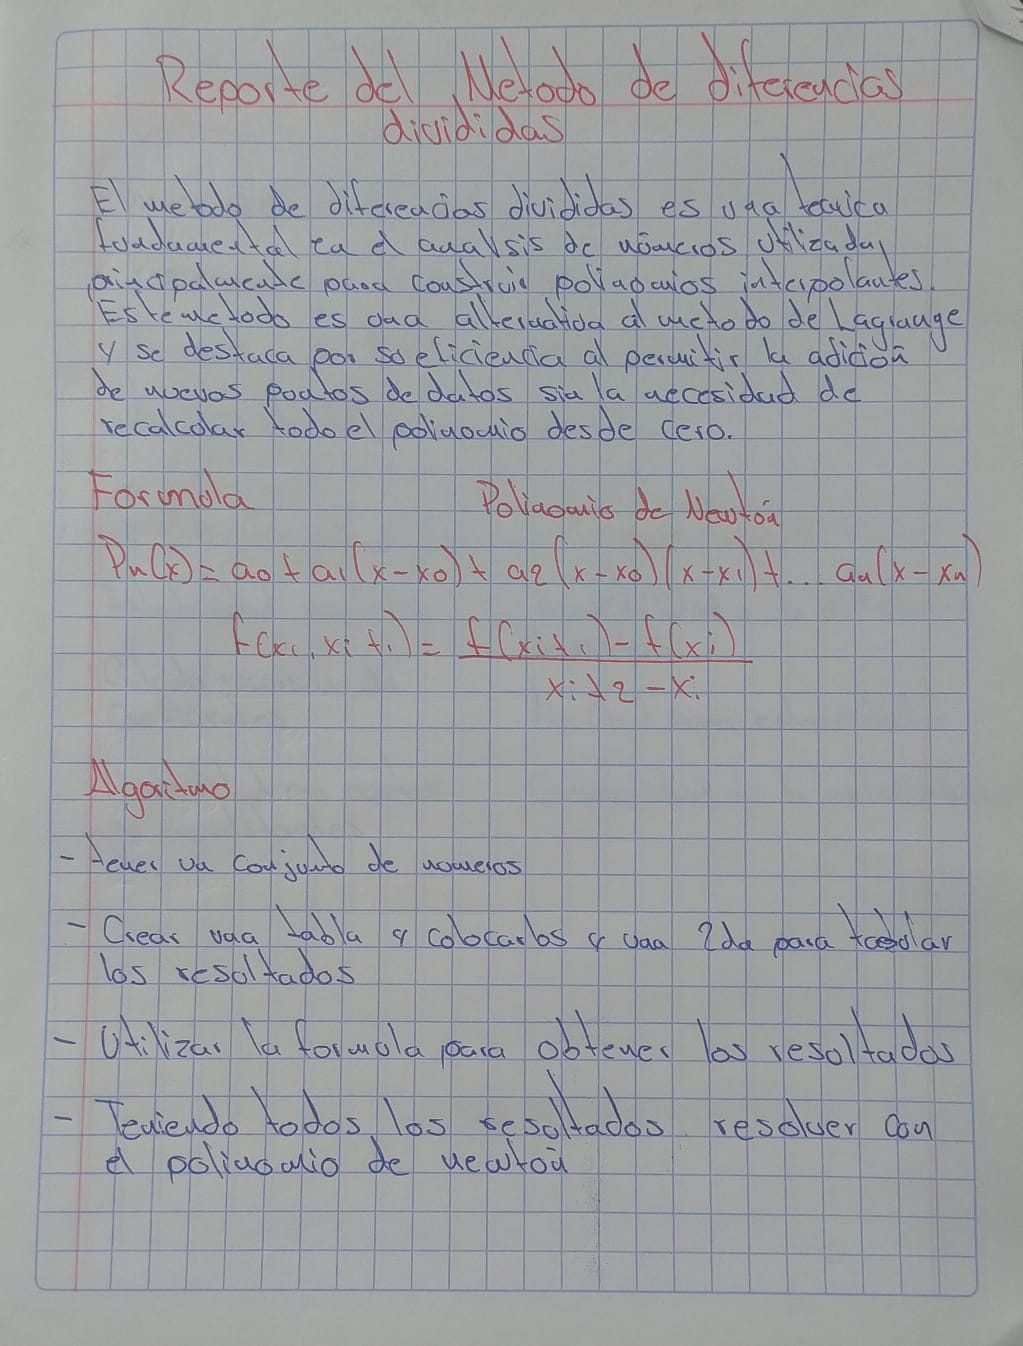 Reporte del Metodo de diferencias
divididas
El metodo de diferencias divididas es una tecnica
fundamental en el analsis de números utilizada,
principalmente para construir polinomios interpolantes.
Este metodo es una alternativa al metodo de Lagrange
y se destaca por su eficiencia al permitir la adición
de nuevos puntos de datos sin la necesidad de
recalcular todo el polinomio desde cero.
Formula
Polinomio de Newton
Pn(x) = a0 + a1(x-x0) + a2(x-x0)(x-x1) + ... an(x-xn)
f(xi, xi+1) = f(xi+1) - f(xi)
xi+2 - xi
Algoritmo
- tener un conjunto de numeros
- Crear una tabla y colocarlos y una 2da para tabular
los resultados
- Utilizar la formula para obtener los resultados
- Teniendo todos los resultados resolver con
el polinomio de newton